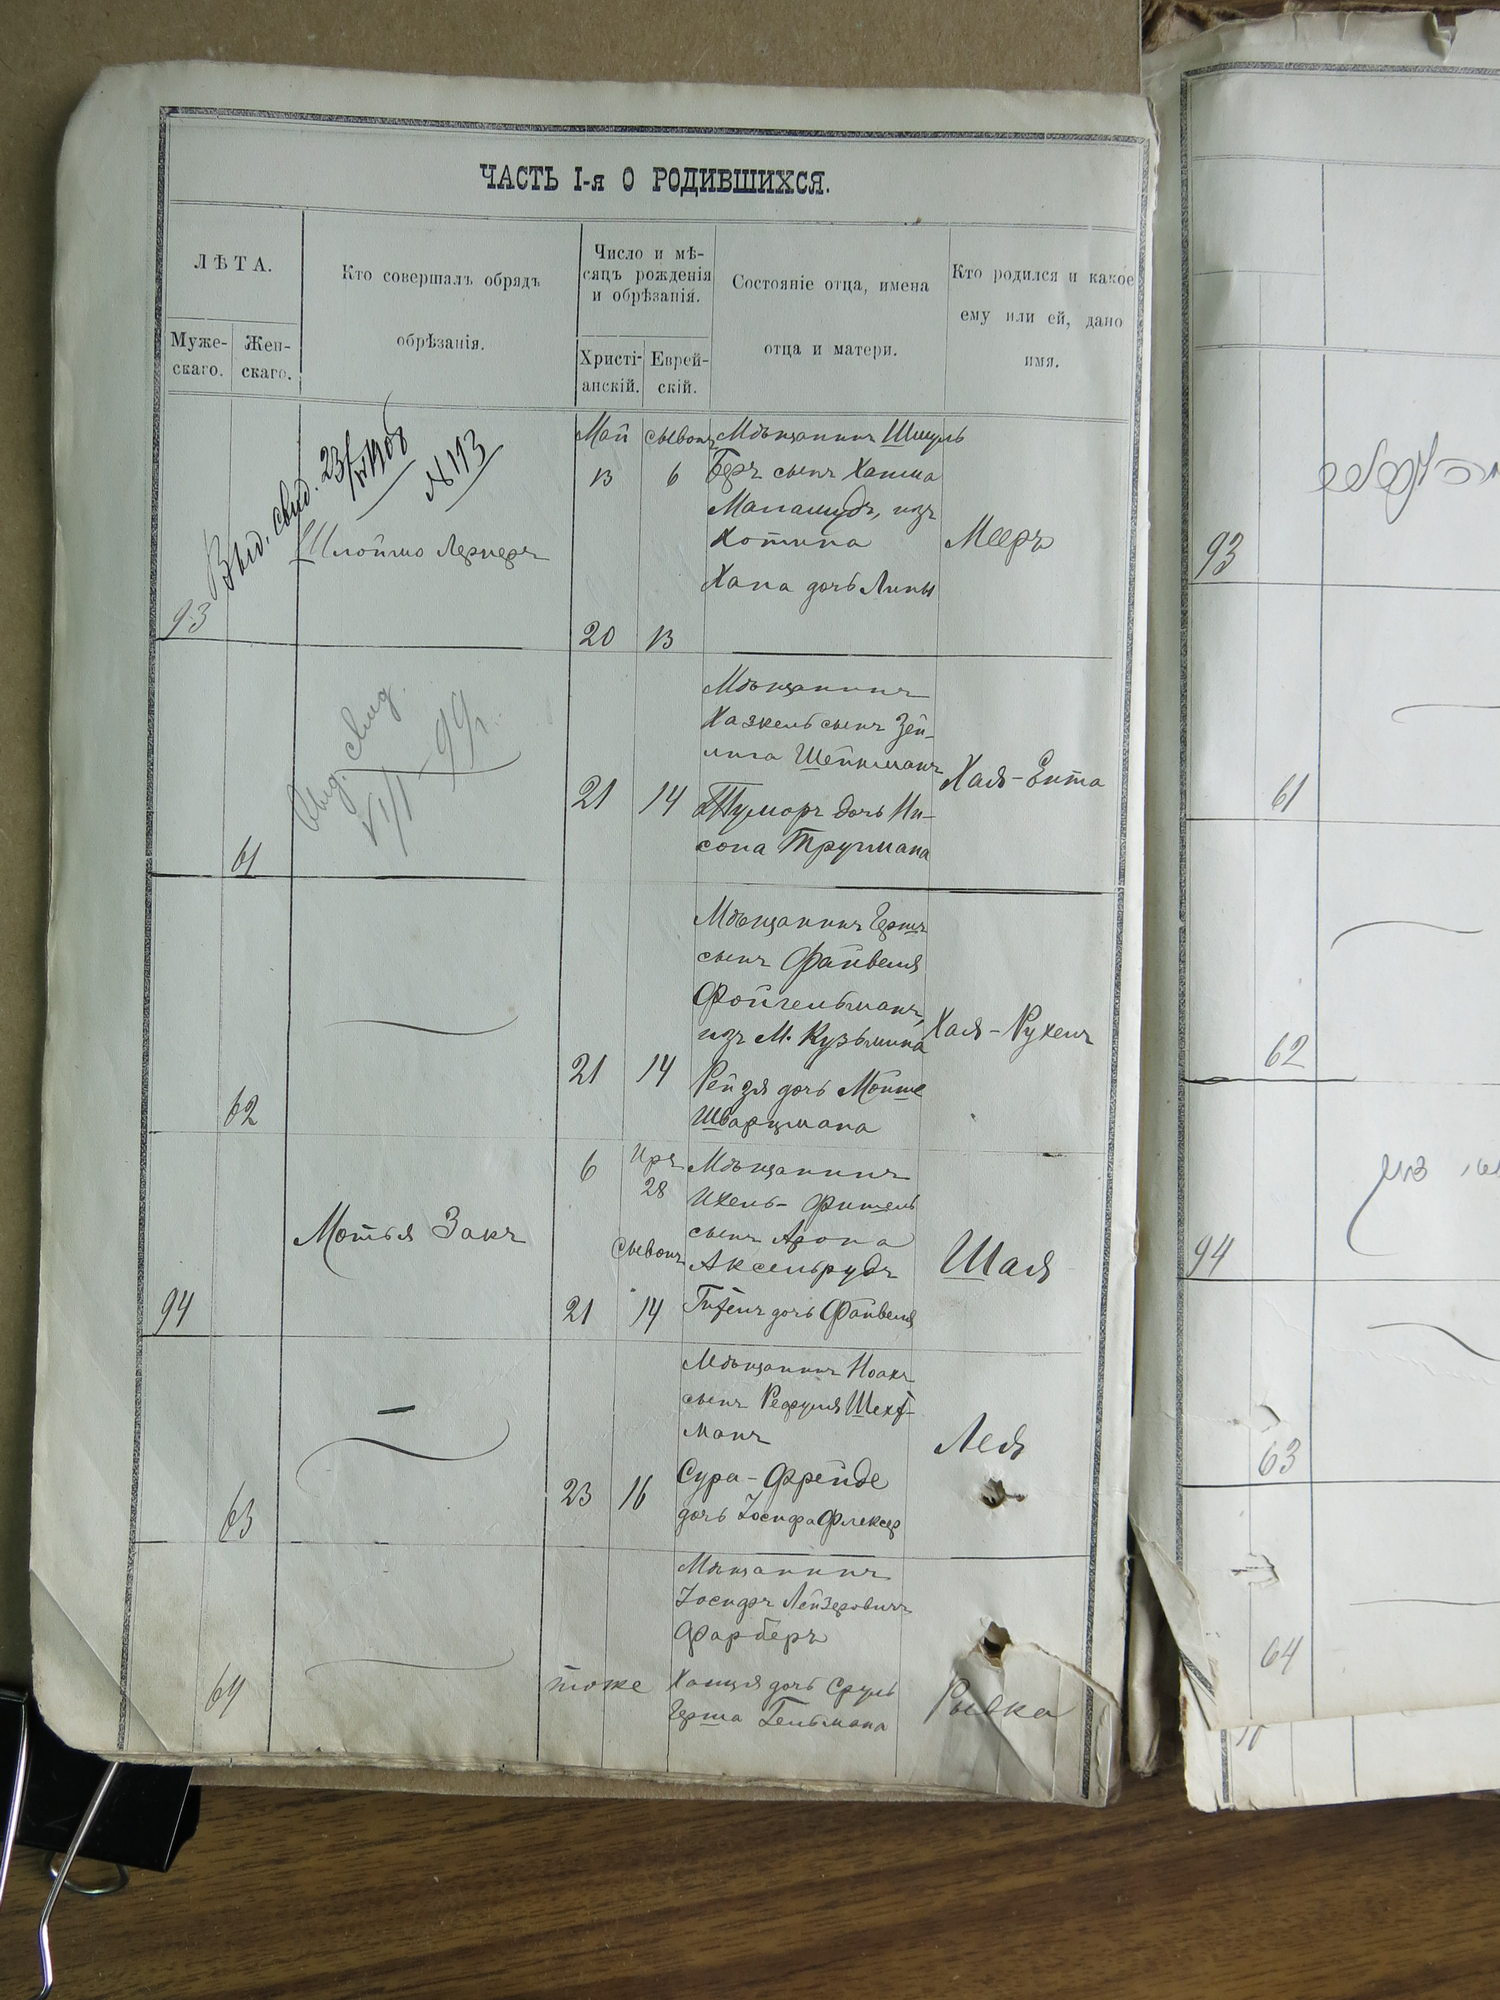 ЧАСТЬ I-я О РОДИВШИХСЯ.
ЛѢТА.
Муже-
скаго.
Жен-
скаго.
Кто совершалъ обрядъ
обрѣзанія.
Число и мѣ-
сяцъ рожденія
и обрѣзанія.
Христі-
анскій.
Еврей-
скій.
Состояніе отца, имена
отца и матери.
Кто родился и какое
ему или ей, дано
имя.
Выд. свид. 23/
№ 113
93
Шлоймо Лернеръ
Май
13
20
сывонъ
6
13
Мѣщанинъ Шмуль
Беръ сынъ Хаима
из
Хотина
Хана дочь Липы
Мееръ
61
Выд. свид.
VII 99г.
21
14
Мѣщанинъ
Хаскель сынъ Зей-
лига Шейнманъ
Тумаръ дочь Ни-
сона Трупмана
Хая-Ента
62
21
14
Мѣщанинъ Гершъ
сынъ Файвеля
Фойгельманъ,
изъ М. Кузьмина
Рейзя дочь Мойше
Шварцмана
Хая-Рухель
94
Мотья Закъ
6
21
Иръ
28
сывонъ
14
Мѣщанинъ
Ихель- Фишель
сынъ Арона
Аксельрудъ
дочь Файвеля
Шая
63
23
16
Мѣщанинъ Ноахъ
сынъ Рефуля Шехт-
манъ
Сура-Фрейде
дочь Іосифа Флексер
Лея
64
тоже
Мѣщанинъ
Іосифъ Лейзеровичъ
Фарберъ
Ханця дочь Сруль
Герша Гельмана
Рывка
93
61
62
94
63
64